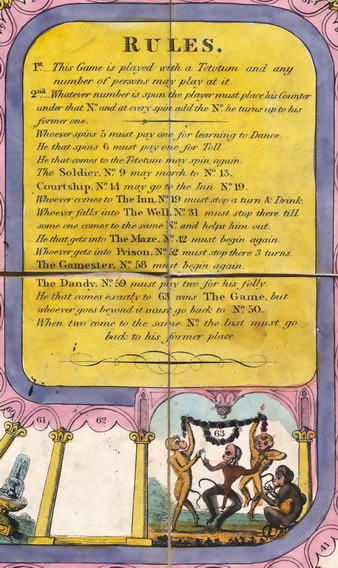 RULES.
1st. This Game is played with a Tetotum and any
number of persons may play at it.
2nd. Whatever number is spun the player must place his Counter
under that No. and at every spin add the No. he turns up to his
former one.
Whoever spins 5 must pay one for learning to Dance.
He that spins 6 must pay one for Toll.
He that comes to the Tetotum may spin again.
The Soldier, No. 9 may march to No. 13.
Courtship, No. 14 may go to the Inn No. 19.
Whoever comes to The Inn, No. 19 must stop a turn & Drink.
Whoever falls into The Well, No. 31 must stop there till
some one comes to the same No. and helps him out.
He that gets into The Maze, No. 42 must begin again.
Whoever gets into Prison, No. 52 must stop there 3 turns.
The Gamester, No. 58 must begin again.
The Dandy, No. 59 must pay two for his folly.
He that comes exactly to 63 wins The Game, but
whoever goes beyond it must go back to No. 50.
When two come to the same No. the last must go
back to his former place
60
61
62
63
41